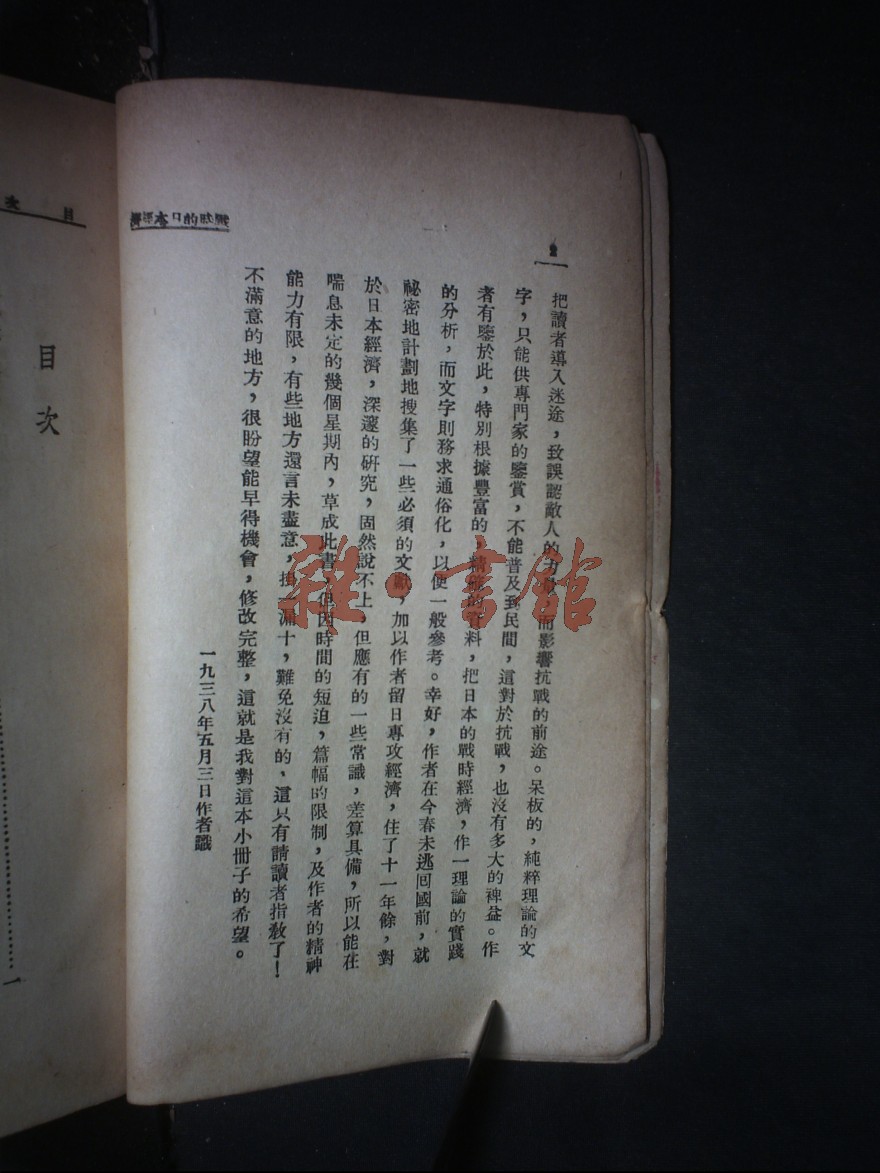 戰時的日本經濟
2
把讀者導入迷途，致誤認敵人的力量，而影響抗戰的前途。呆板的，純粹理論的文
字，只能供專門家的鑒賞，不能普及到民間，這對於抗戰，也沒有多大的裨益。作
者有鑒於此，特別根據豐富的，精確的資料，把日本的戰時經濟，作一理論的實踐
的分析，而文字則務求通俗化，以便一般參考。幸好，作者在今春未逃囘國前，就
祕密地計劃地搜集了一些必須的文獻，加以作者留日專攻經濟，住了十一年餘，對
於日本經濟，深邃的研究，固然說不上，但應有的一些常識，差算具備，所以能在
喘息未定的幾個星期內，草成此書，但因時間的短迫，篇幅的限制，及作者的精神
能力有限，有些地方還言未盡意，掛一漏十，難免沒有的，這只有請讀者指敎了！
不滿意的地方，很盼望能早得機會，修改完整，這就是我對這本小冊子的希望。
一九三八年五月三日作者識
目次
目次
一
雜·書館